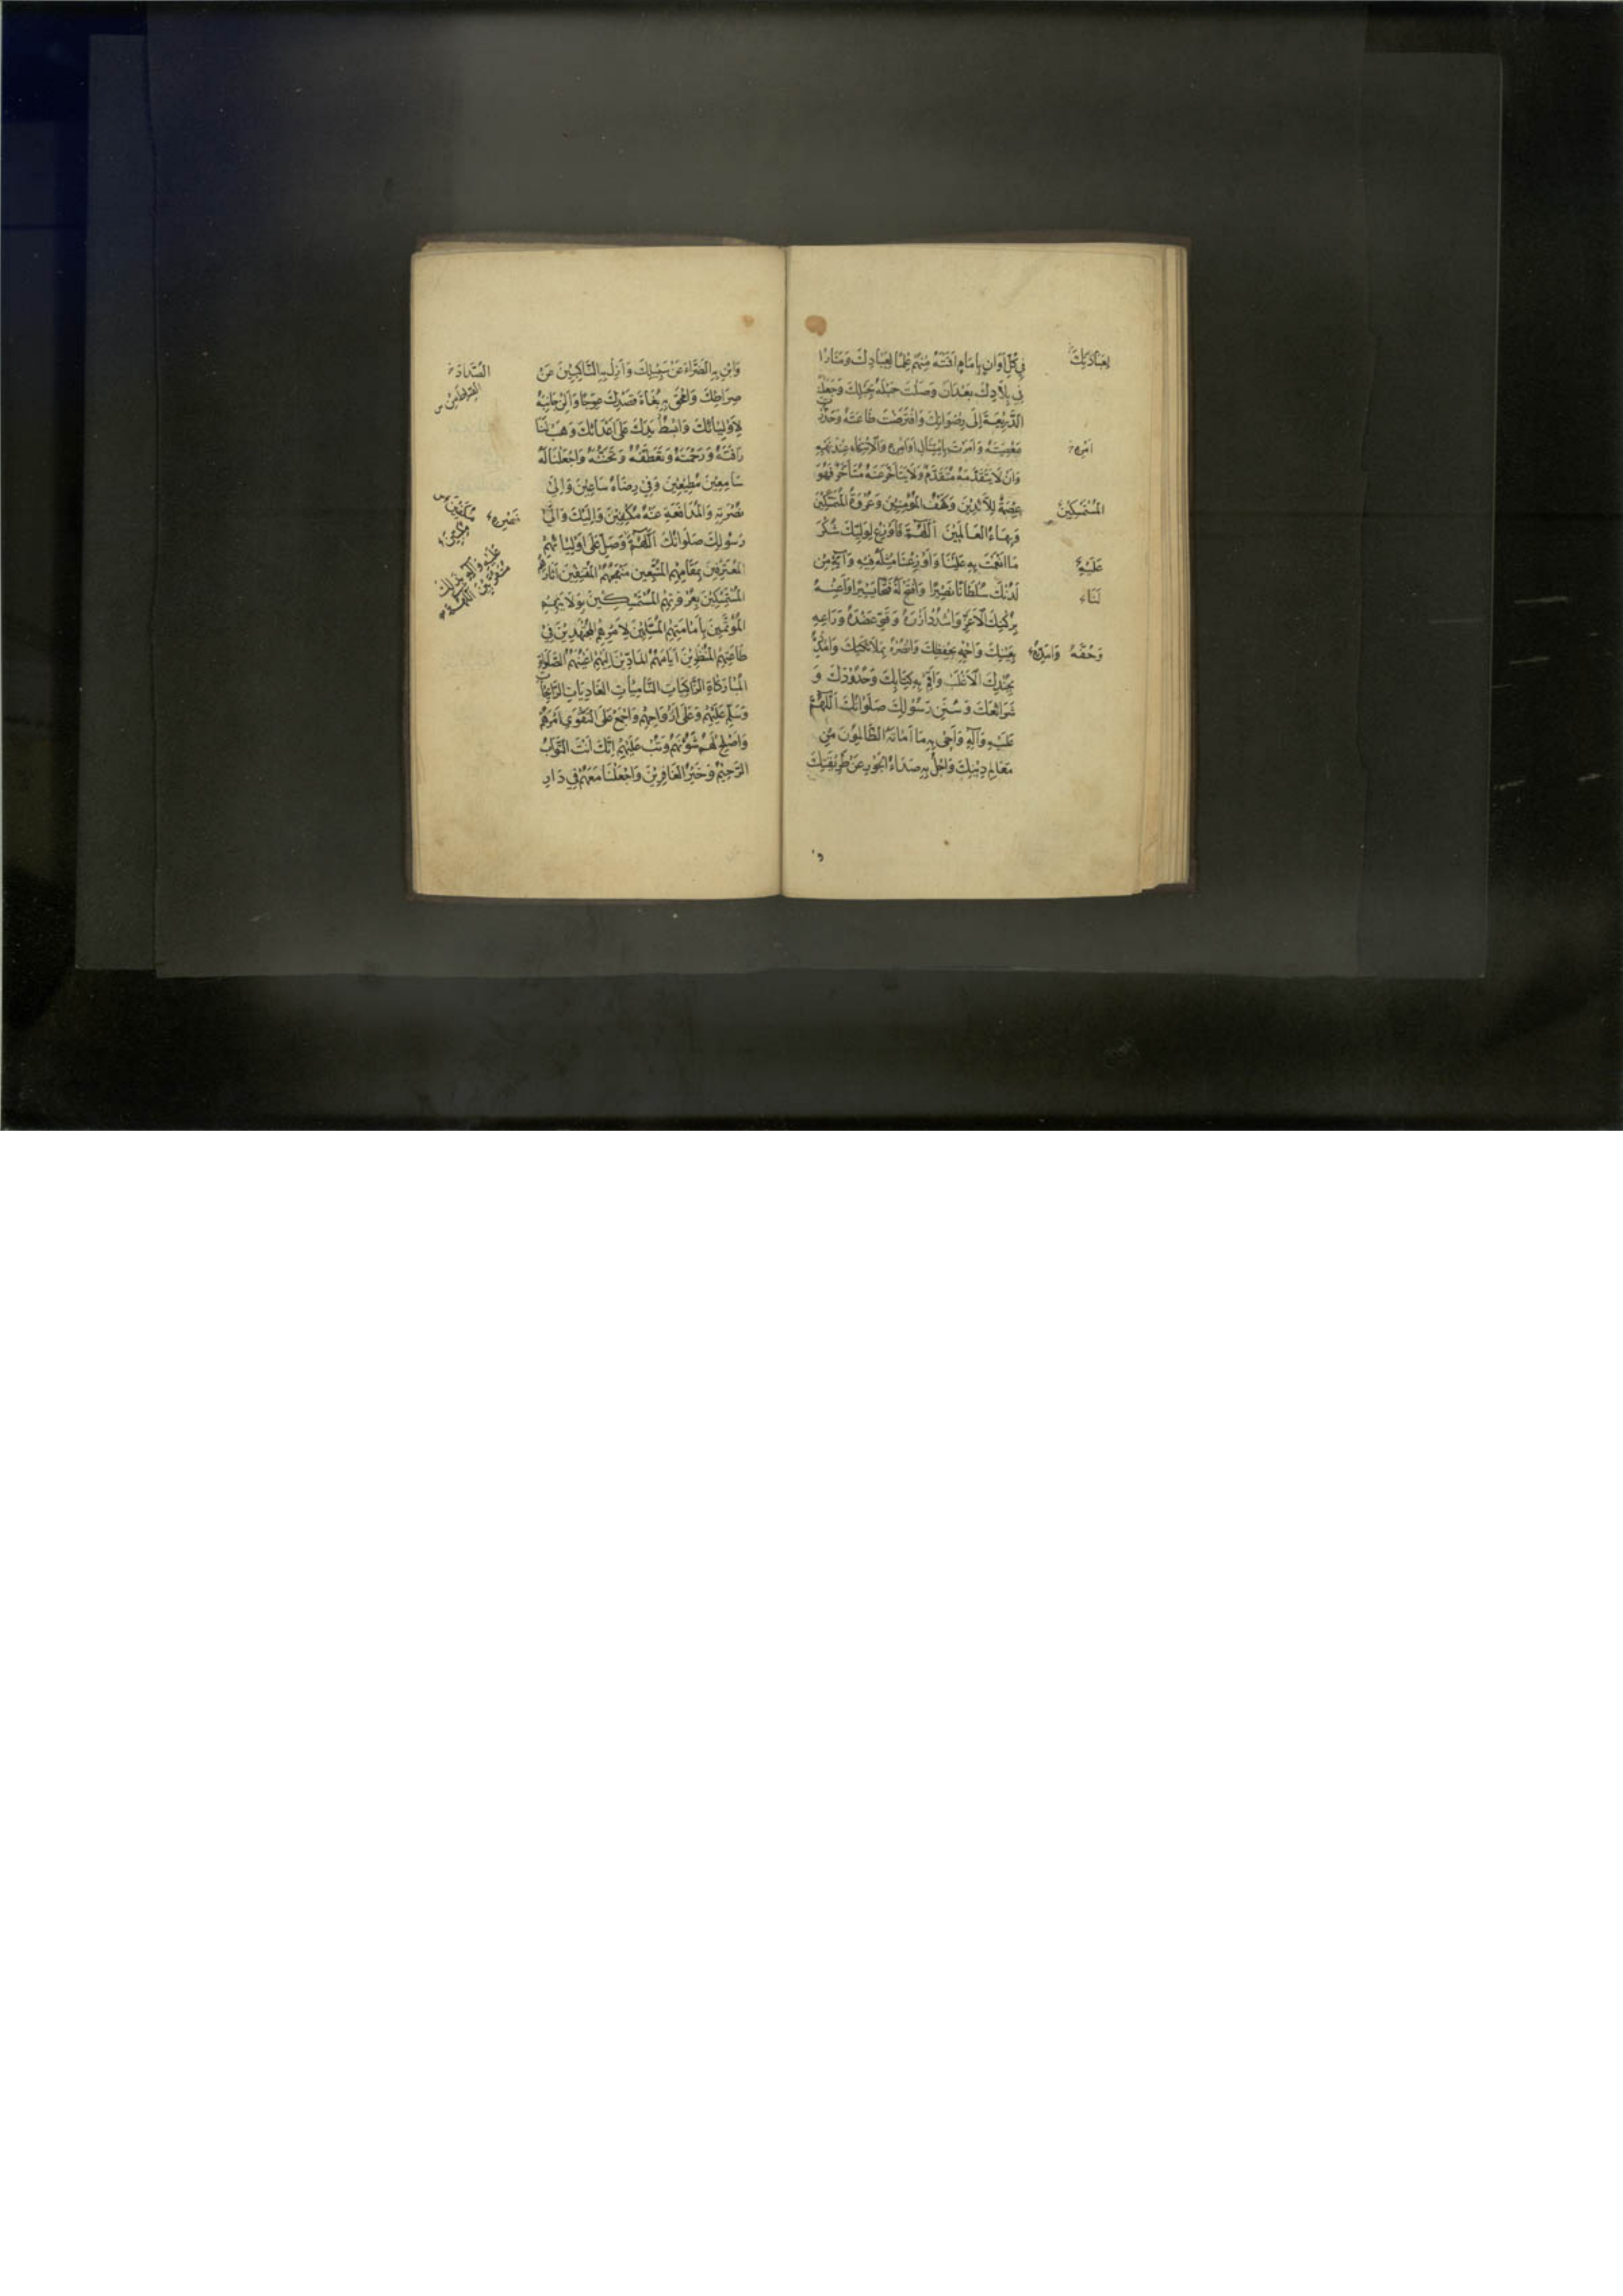 فِي كُلِّ اَوَانٍ بِاِمَامٍ اَقَمْتَهُ عَلَمًا لِعِبَادِكَ وَمَنَارًا
فِي بِلَادِكَ بَعْدَ اَنْ وَصَلْتَ حَبْلَهُ بِحَبْلِكَ وَجَعَلْتَهُ
الذَّرِيعَةَ اِلَى رِضْوَانِكَ وَافْتَرَضْتَ طَاعَتَهُ وَحَذَّرْتَ
مَعْصِيَتَهُ وَاَمَرْتَ بِامْتِثَالِ اَوَامِرِهِ وَالْاِنْتِهَاءِ عِنْدَ نَهْيِهِ
وَاَنْ لَا يَتَقَدَّمَهُ مُتَقَدِّمٌ وَلَا يَتَاَخَّرَ عَنْهُ مُتَاَخِّرٌ فَهُوَ
عِصْمَةُ اللَّائِذِينَ وَكَهْفُ الْمُؤْمِنِينَ وَعُرْوَةُ الْمُتَمَسِّكِينَ
وَبَهَاءُ الْعَالَمِينَ اَللّٰهُمَّ فَاَوْزِعْ لِوَلِيِّكَ شُكْرَ
مَا اَنْعَمْتَ بِهِ عَلَيْنَا وَاَوْزِعْنَا مِثْلَهُ فِيهِ وَآتِهِ مِنْ
لَدُنْكَ سُلْطَانًا نَصِيرًا وَافْتَحْ لَهُ فَتْحًا يَسِيرًا وَاَعِنْهُ
بِرُكْنِكَ الْاَعَزِّ وَاشْدُدْ اَزْرَهُ وَقَوِّ عَضُدَهُ وَرَاعِهِ
بِعَيْنِكَ وَاحْمِهِ بِحِفْظِكَ وَانْصُرْهُ بِمَلَائِكَتِكَ وَامْدُدْهُ
بِجُنْدِكَ الْاَغْلَبِ وَاَقِمْ بِهِ كِتَابَكَ وَحُدُودَكَ وَ
شَرَائِعَكَ وَسُنَنَ رَسُولِكَ صَلَوَاتُكَ اَللّٰهُمَّ
عَلَيْهِ وَآلِهِ وَاَحْيِ بِهِ مَا اَمَاتَهُ الظَّالِمُونَ مِنْ
مَعَالِمِ دِينِكَ وَاجْلُ بِهِ صَدَاءَ الْجَوْرِ عَنْ طَرِيقَتِكَ
اَمْرِهِ
الْمُتَمَسِّكِينَ
عَلَيْهِ
لَنَا
وَابِنْ بِهِ الضَّرَّاءَ عَنْ سَبِيلِكَ وَاَزِلْ بِهِ النَّاكِبِينَ عَنْ
صِرَاطِكَ وَامْحَقْ بِهِ بُغَاةَ قَصْدِكَ عِوَجًا وَاَلِنْ جَانِبَهُ
لِاَوْلِيَائِكَ وَابْسُطْ يَدَهُ عَلَى اَعْدَائِكَ وَهَبْ لَنَا
رَاْفَتَهُ وَرَحْمَتَهُ وَتَعَطُّفَهُ وَتَحَنُّنَهُ وَاجْعَلْنَا لَهُ
سَامِعِينَ مُطِيعِينَ وَفِي رِضَاهُ سَاعِينَ وَاِلَى
نُصْرَتِهِ وَالْمُدَافَعَةِ عَنْهُ مُكْنِفِينَ وَاِلَيْكَ وَاِلَى
رَسُولِكَ صَلَوَاتُكَ اَللّٰهُمَّ وَصَلِّ عَلَى اَوْلِيَائِهِمُ
الْمُعْتَرِفِينَ بِمَقَامِهِمُ الْمُتَّبِعِينَ مَنْهَجَهُمُ الْمُقْتَفِينَ آثَارَهُمُ
الْمُسْتَمْسِكِينَ بِعُرْوَتِهِمُ الْمُتَمَسِّكِينَ بِوَلَايَتِهِمُ
الْمُؤْتَمِّينَ بِاِمَامَتِهِمُ الْمُسَلِّمِينَ لِاَمْرِهِمُ الْمُجْتَهِدِينَ فِي
طَاعَتِهِمُ الْمُنْتَظِرِينَ اَيَّامَهُمُ الْمَادِّينَ اِلَيْهِمْ اَعْيُنَهُمُ الصَّلَوَاتِ
الْمُبَارَكَاتِ الزَّاكِيَاتِ النَّامِيَاتِ الْغَادِيَاتِ الرَّائِحَاتِ
وَسَلِّمْ عَلَيْهِمْ وَعَلَى اَرْوَاحِهِمْ وَاجْمَعْ عَلَى التَّقْوَى اَمْرَهُمْ
وَاَصْلِحْ لَهُمْ شُؤُنَهُمْ وَتُبْ عَلَيْهِمْ اِنَّكَ اَنْتَ التَّوَّابُ
الرَّحِيمُ وَخَيْرُ الْغَافِرِينَ وَاجْعَلْنَا مَعَهُمْ فِي دَارِ